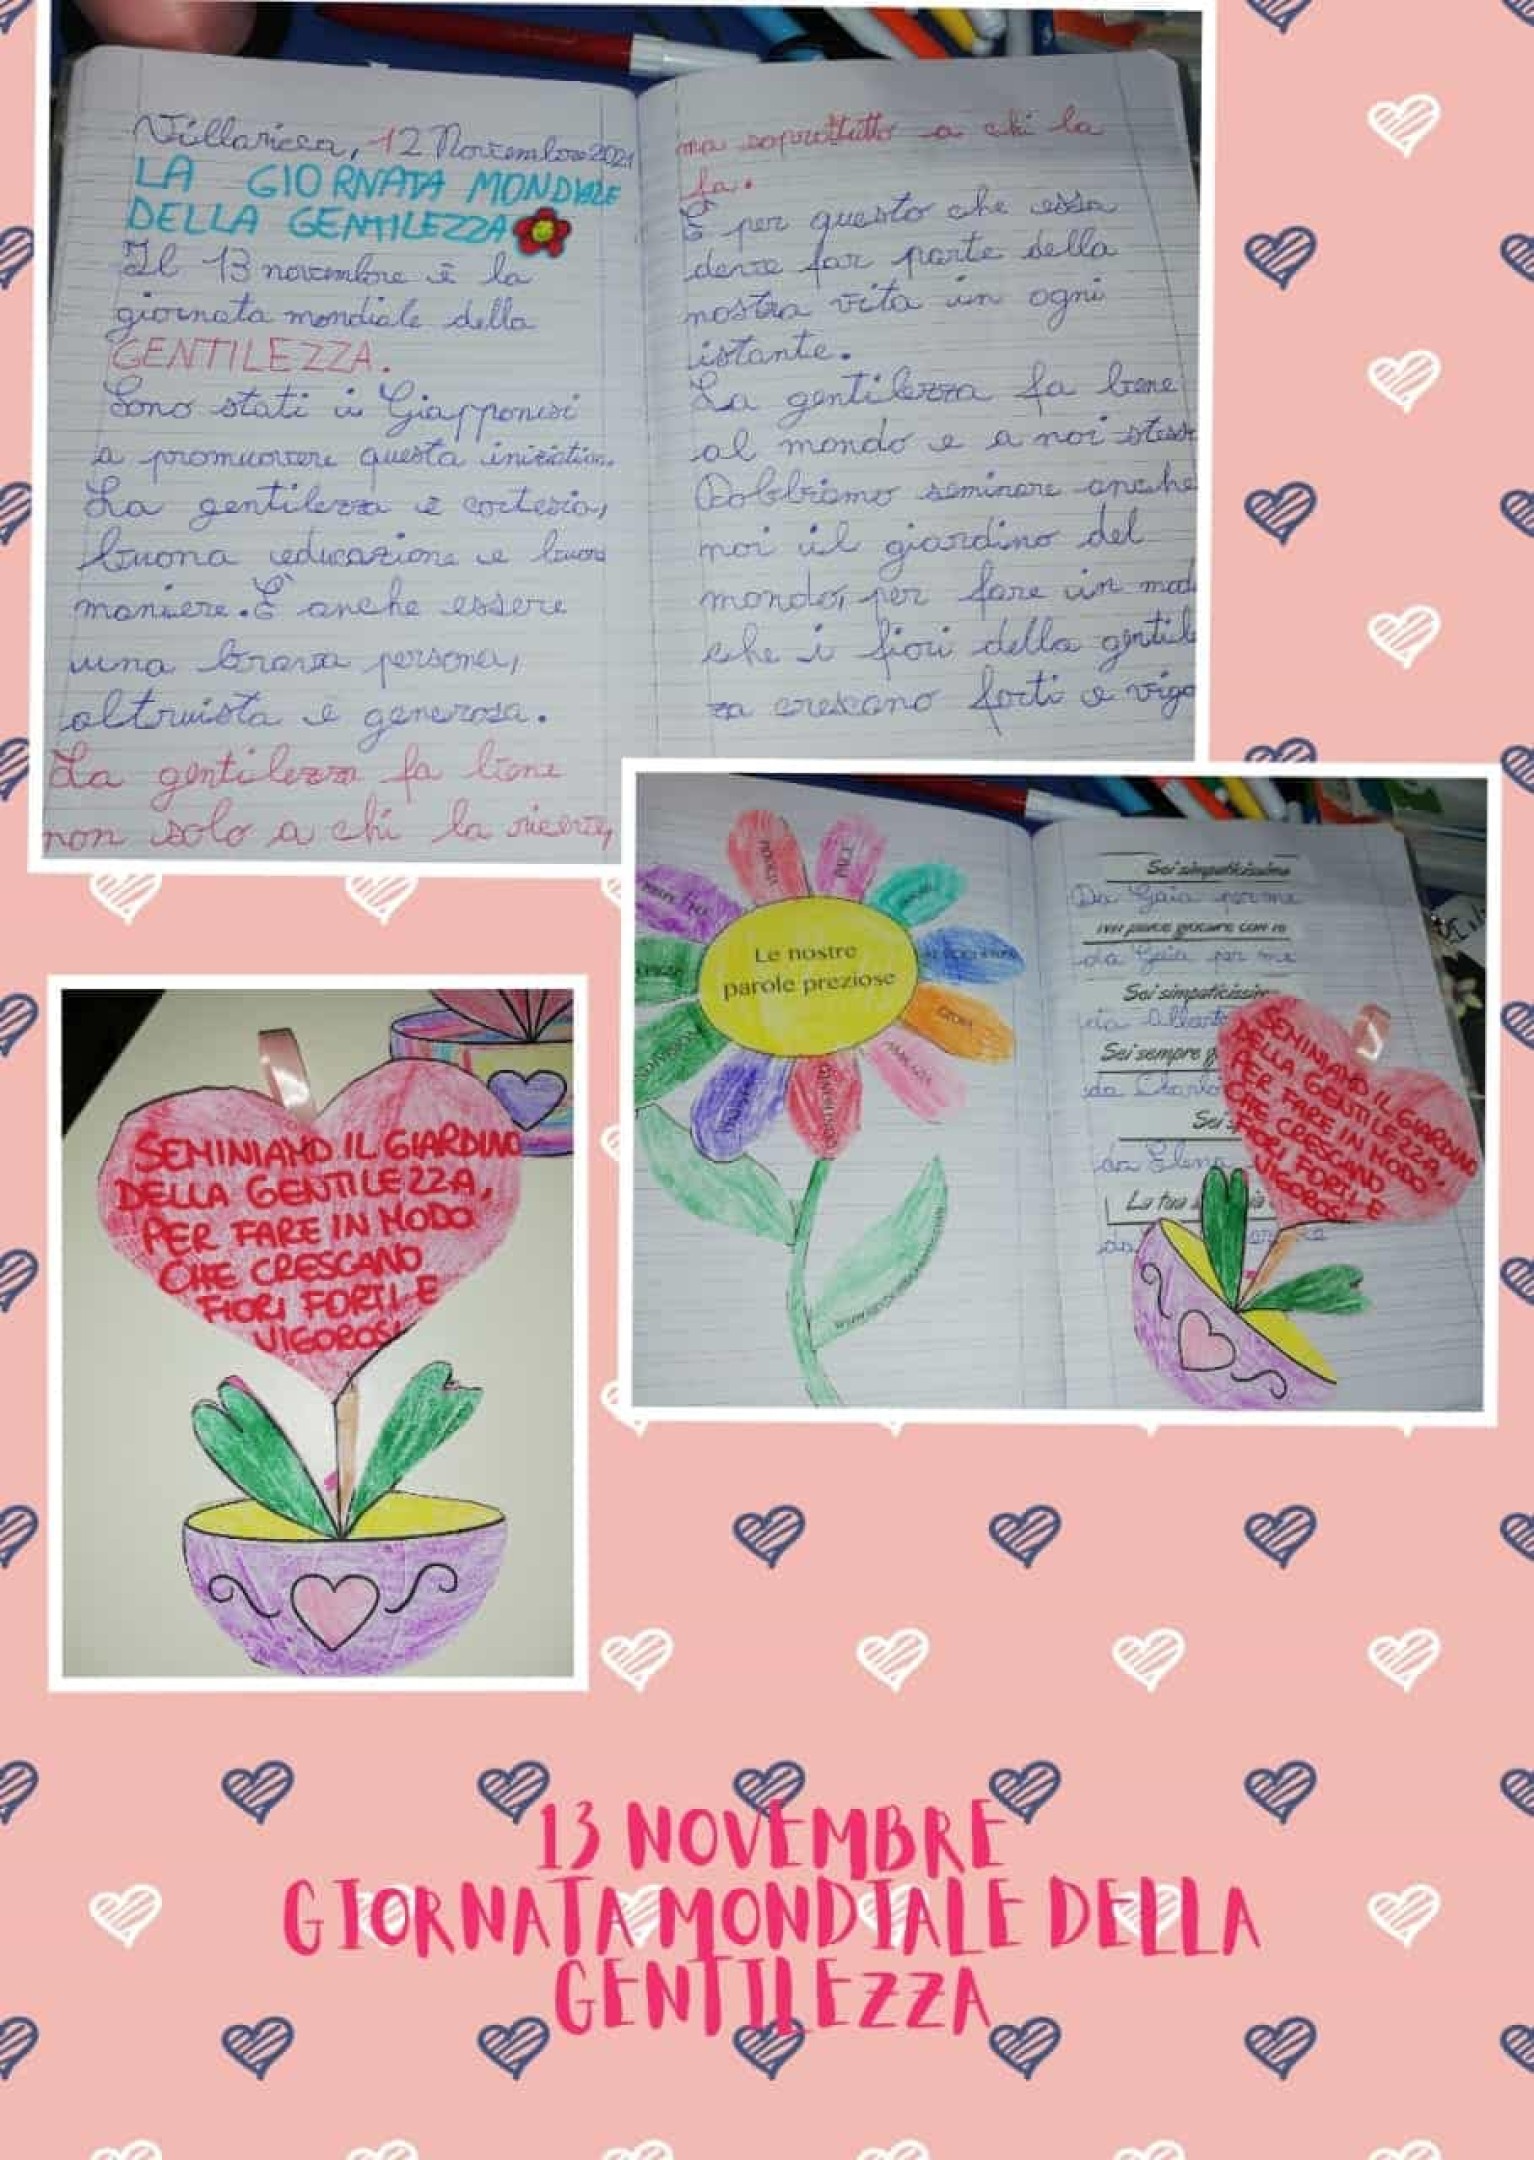 Villaricca, 12 Novembre 2021
LA GIORNATA MONDIALE
DELLA GENTILEZZA
Il 13 novembre è la
giornata mondiale della
GENTILEZZA.
Sono stati i Giapponesi
a promuovere questa
La gentilezza è cortesia,
buona educazione e buone
maniere. È anche essere
una brava persona,
altruista e generosa.
La gentilezza fa bene
non solo a chi la riceve,
ma soprattutto a chi la
fa.
È per questo che essa
deve far parte della
nostra vita in ogni
istante.
La gentilezza fa bene
al mondo e a noi
Dobbiamo seminare anche
noi il giardino del
mondo, per fare in mod
che i fiori della gentile
za crescano forti e vigo
PACE
Le nostre
parole preziose
Sei simpaticissimo
Da Gaia per me
da Gaia per me
Sei simpaticissim
Alberto
Sei sempre g
da
Sei s
da Elena
La tua
da
SEMINIAMO IL GIARDINO
DELLA GENTILEZZA,
PER FARE IN MODO
CHE CRESCANO
FIORI FORTI E
VIGOROSI
SEMINIAMO IL GIARDINO
DELLA GENTILEZZA,
PER FARE IN MODO
CHE CRESCANO
FIORI FORTI E
VIGOROSI
13 NOVEMBRE
GIORNATA MONDIALE DELLA
GENTILEZZA